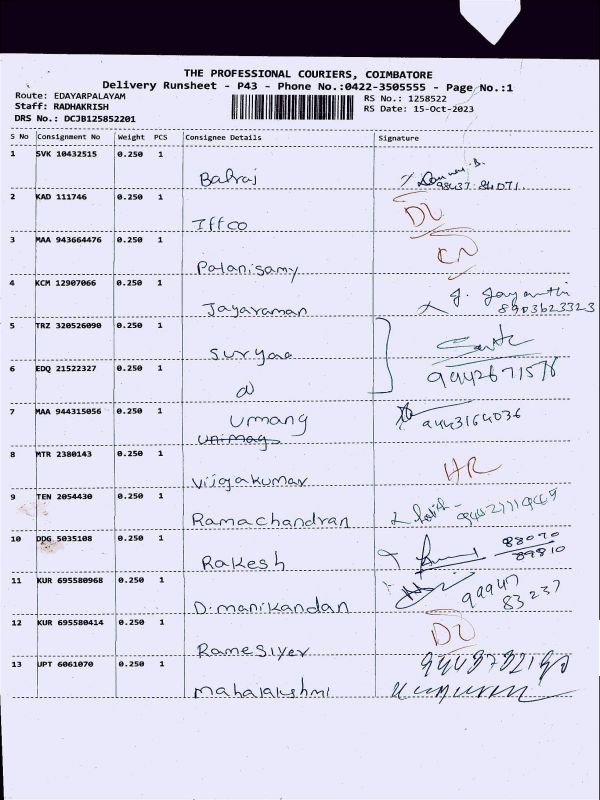 THE PROFESSIONAL COURIERS, COIMBATORE
Delivery Runsheet - P43 - Phone No.:0422-3505555 - Page No.:1
Route: EDAYARPALAYAM
Staff: RADHAKRISH
DRS No.: DCJB125852201
RS No.: 1258522
RS Date: 15-Oct-2023
S No Consignment No Weight PCS Consignee Details Signature
1 SVK 10432515 0.250 1
Balraj
98437 84071
2 KAD 111746 0.250 1
Iffco DL
3 MAA 943664476 0.250 1
Palanisamy CN
4 KCM 12907066 0.250 1
Jayaraman J. Jayanthi
8903623323
5 TRZ 320526090 0.250 1
Suryaa
6 EDQ 21522327 0.250 1
9942671576
7 MAA 944315056 0.250 1
Umang 9443164036
unimag
8 MTR 2380143 0.250 1
Vijgakumar HR
9 TEN 2054430 0.250 1
Ramachandran
10 DDG 5035108 0.250 1
Rakesh 88070
89810
11 KUR 695580968 0.250 1
D. manikandan 99947
83237
12 KUR 695580414 0.250 1
Ramesiyer DL
13 UPT 6061070 0.250 1
mahalakshmi